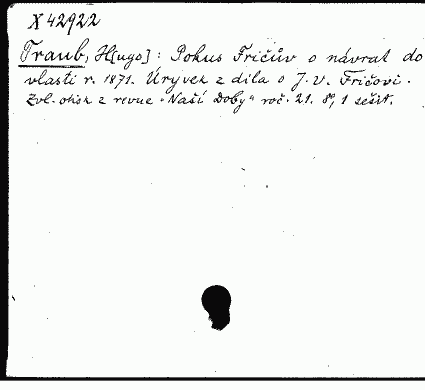 X 42922
Traub, H[ugo]: Pokus Fričův o návrat do
vlasti r. 1871. Úryvek z díla o J. V. Fričovi.
Zvl. otisk z revue "Naší Doby" roč. 21. 8°, 1 sešit.